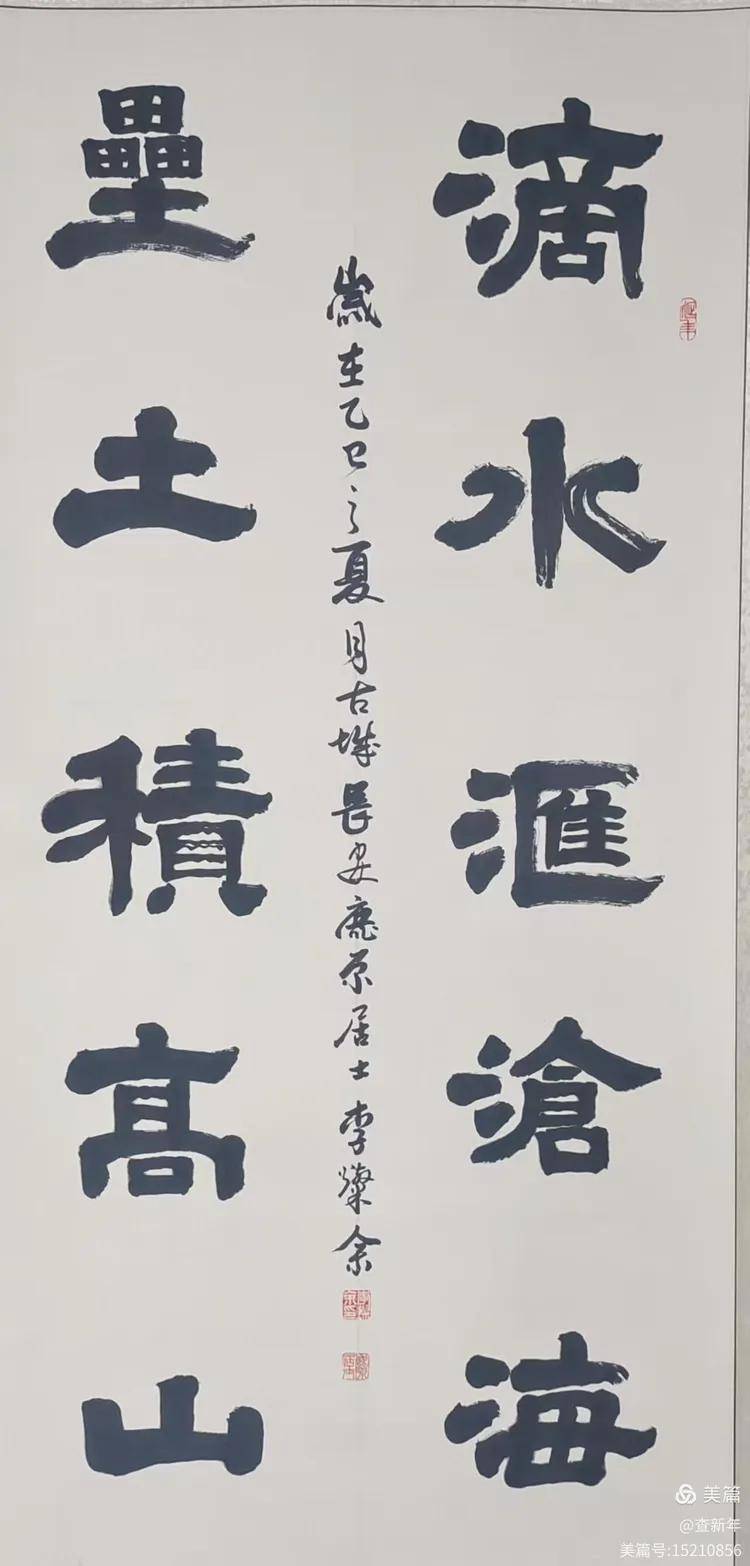 滴水滙滄海
壘土積高山
歲在乙巳之夏月古城長安鹿原居士李燦余
美篇
@查新年
美篇号:15210856